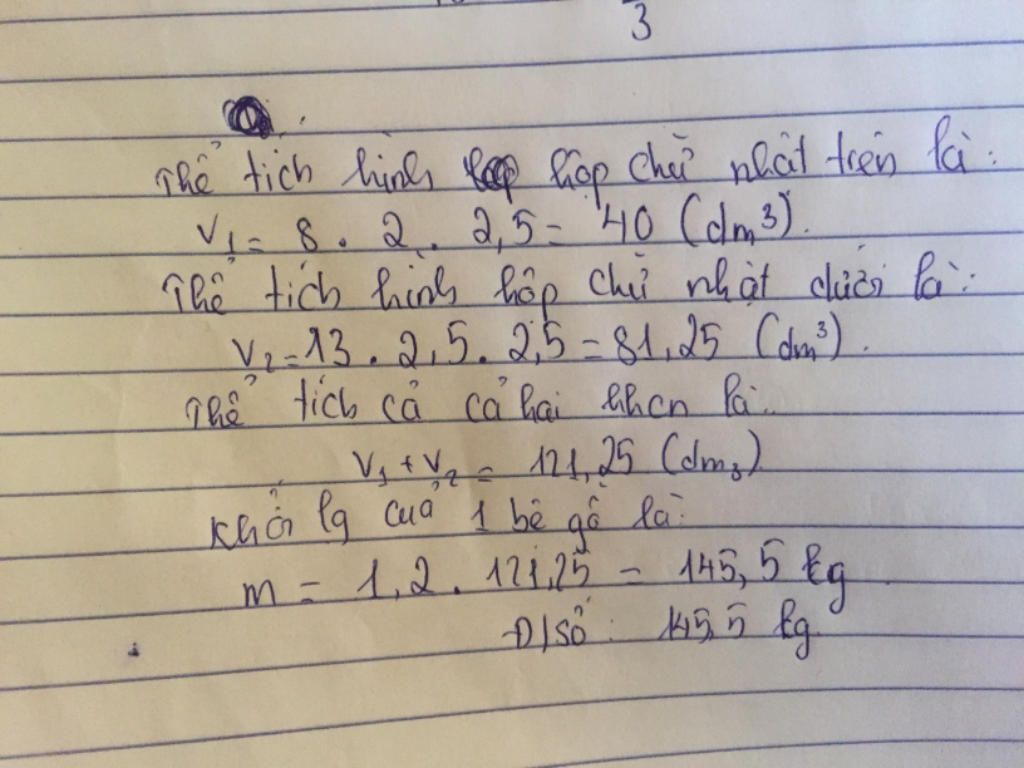 3
Thể tích hình hộp chữ nhật trên là:
V₁ = 8 . 2 . 2,5 = 40 (dm³).
Thể tích hình hộp chữ nhật dưới là:
V₂ = 13 . 2,5 . 2,5 = 81,25 (dm³).
Thể tích cả cả hai hhcn là:
V₁ + V₂ = 121,25 (dm₃)
Khối lg của 1 bê gỗ là:
m = 1,2 . 121,25 = 145,5 kg
Đ/số: 145,5 kg